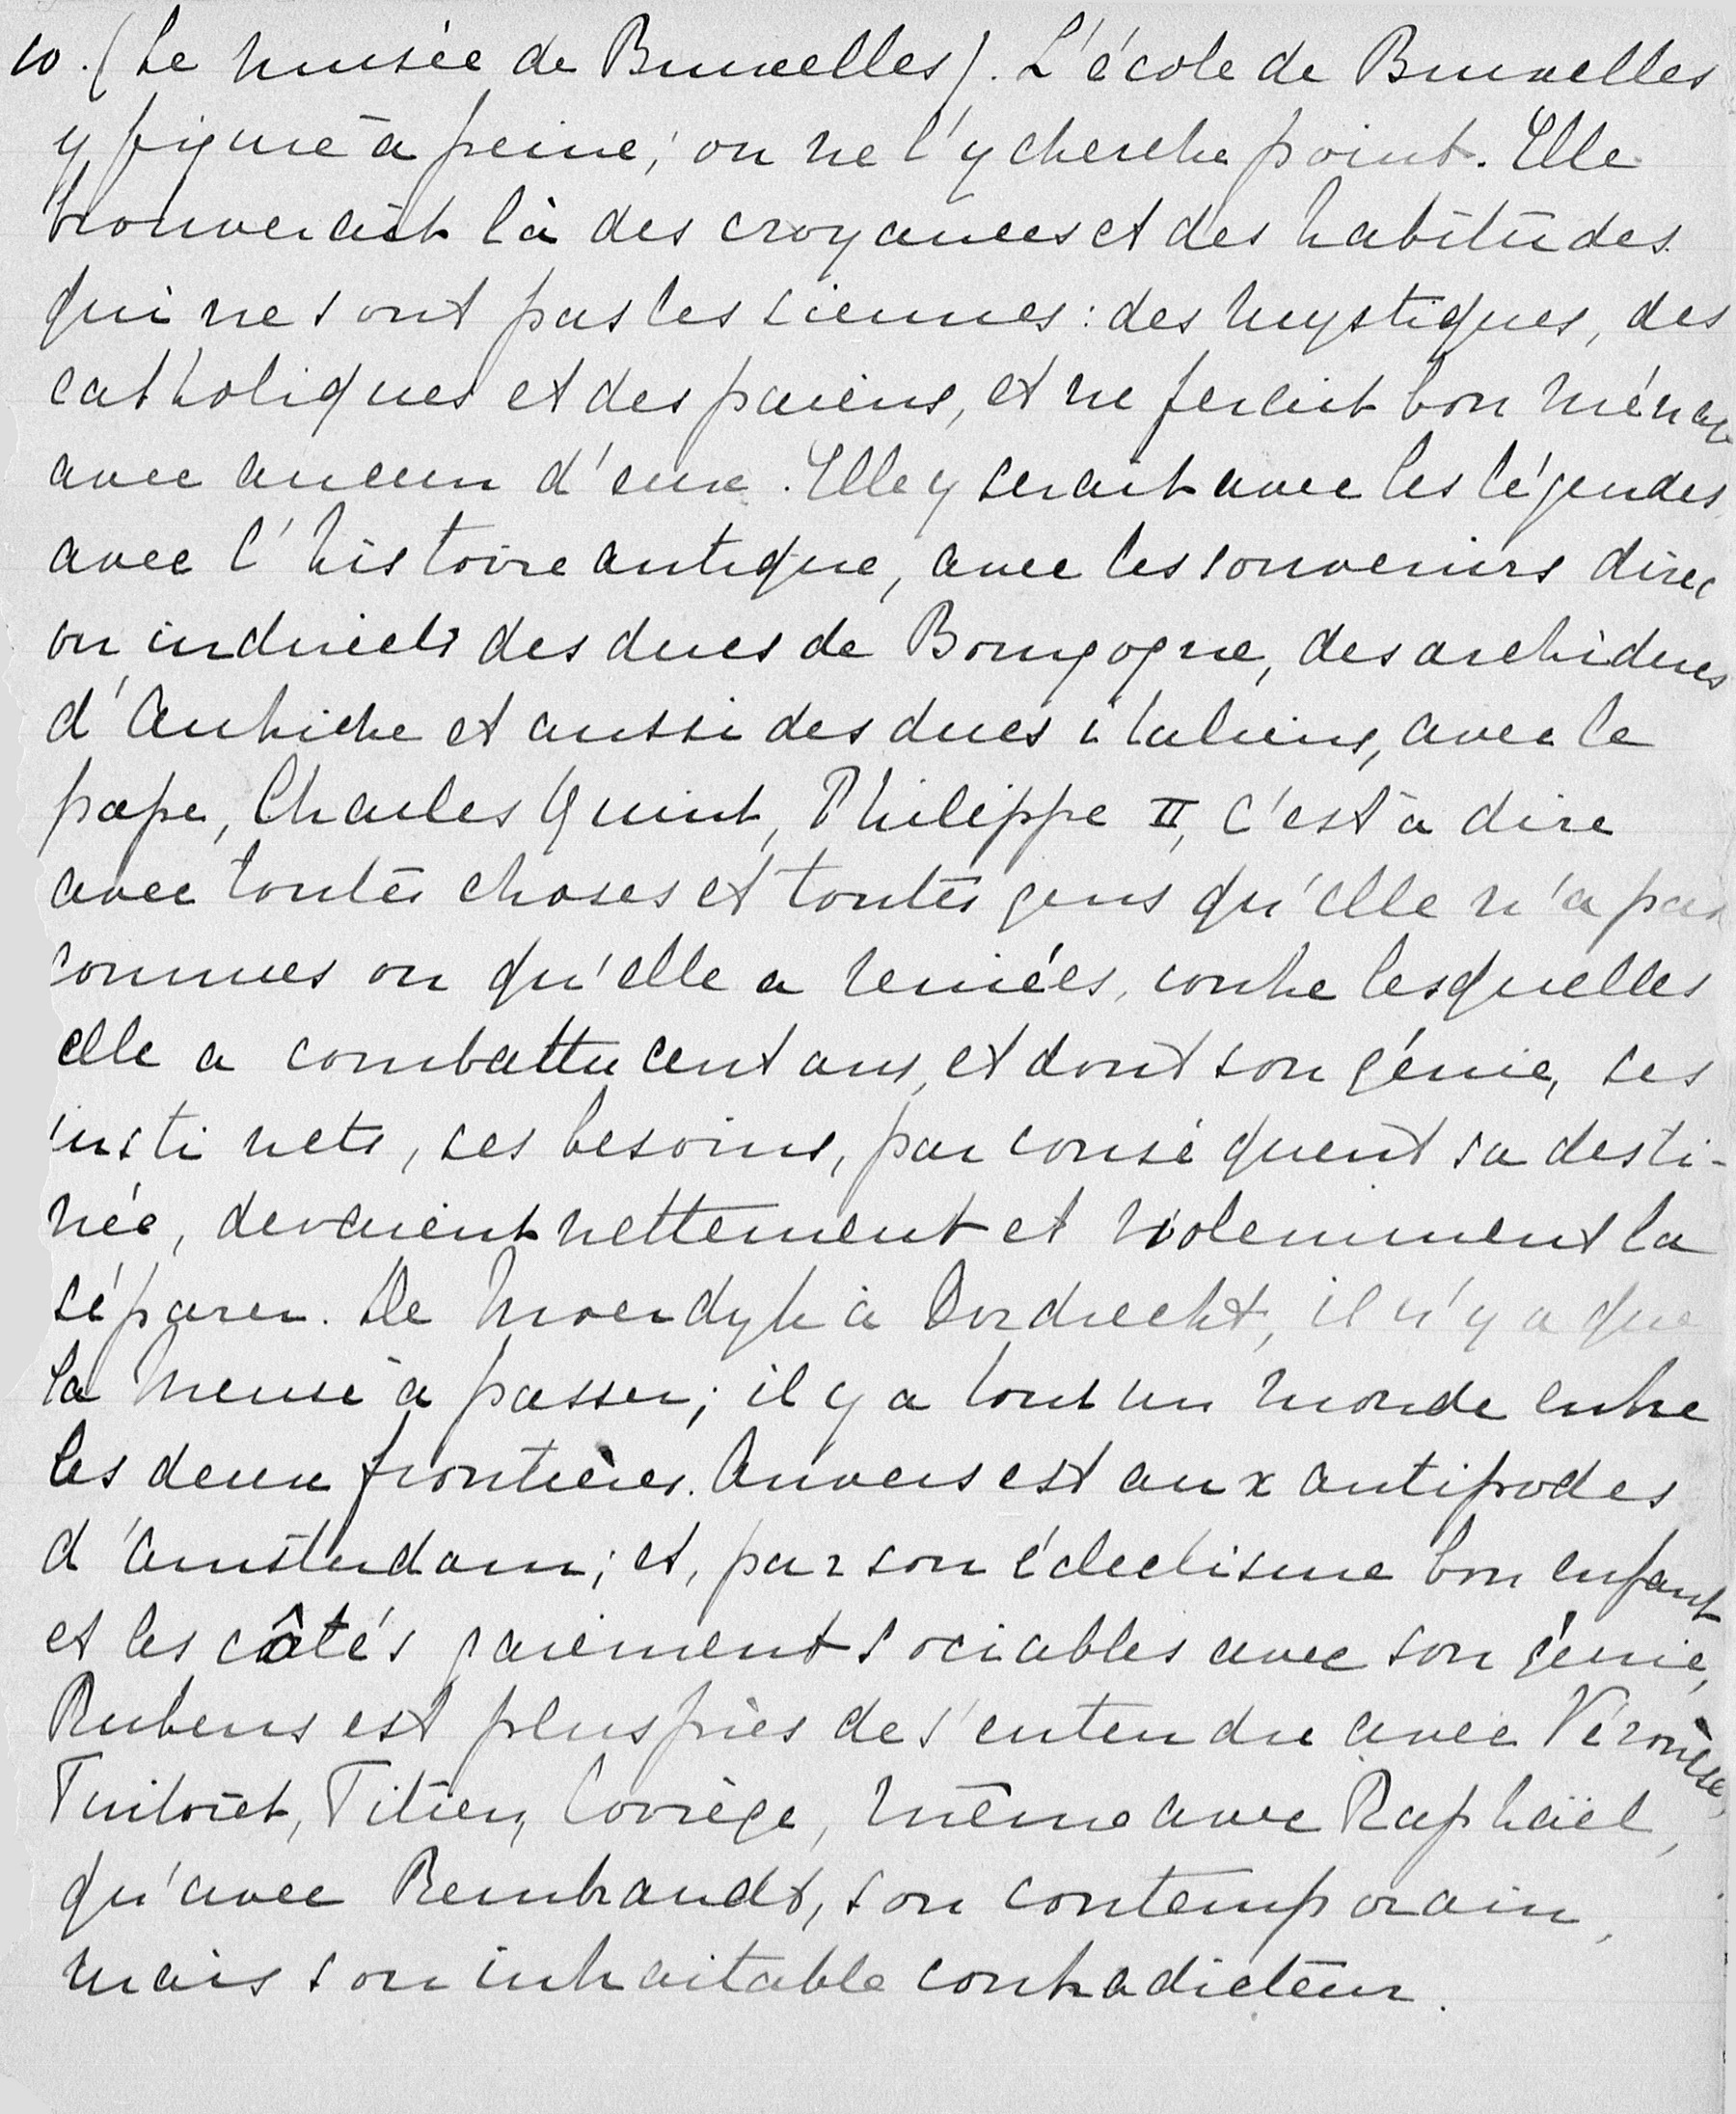 10. (Le musée de Bruxelles). L'école de Bruxelles
y figure à peine; on ne l'y cherche point. Elle
trouverait là des croyances et des habitudes
qui ne sont pas les siennes: des mystiques, des
catholiques et des paiens, et ne ferait bon ménage
avec aucun d'eux. Elle y serait avec les légendes,
avec l'histoire antique, avec les souvenirs direc
ou indirects des ducs de Bourgogne, des archiducs
d'Autriche et aussi des ducs italiens, avec le
pape, Charles Quint, Philippe II, c'est à dire
avec toutes choses et toutes gens qu'elle n'a pas
connues ou qu'elle a reniées, contre lesquelles
elle a combattu cent ans, et dont son génie, ses
instincts, ses besoins, par conséquent sa desti-
née, devaient nettement et violemment la
séparer. De Moerdyk à Dordrecht, il n'y a que
la Meuse à passer; il y a tout un monde entre
les deux frontières. Anvers est aux antipodes
d'Amsterdam; et, par son éclectisme bon enfant
et les côtés gaiement sociables avec son génie,
Rubens est plus près de s'entendre avec Véronèse,
Tintoret, Titien, Corrège, même avec Raphaël,
qu'avec Rembrandt, son contemporain,
mais son intraitable contradicteur.